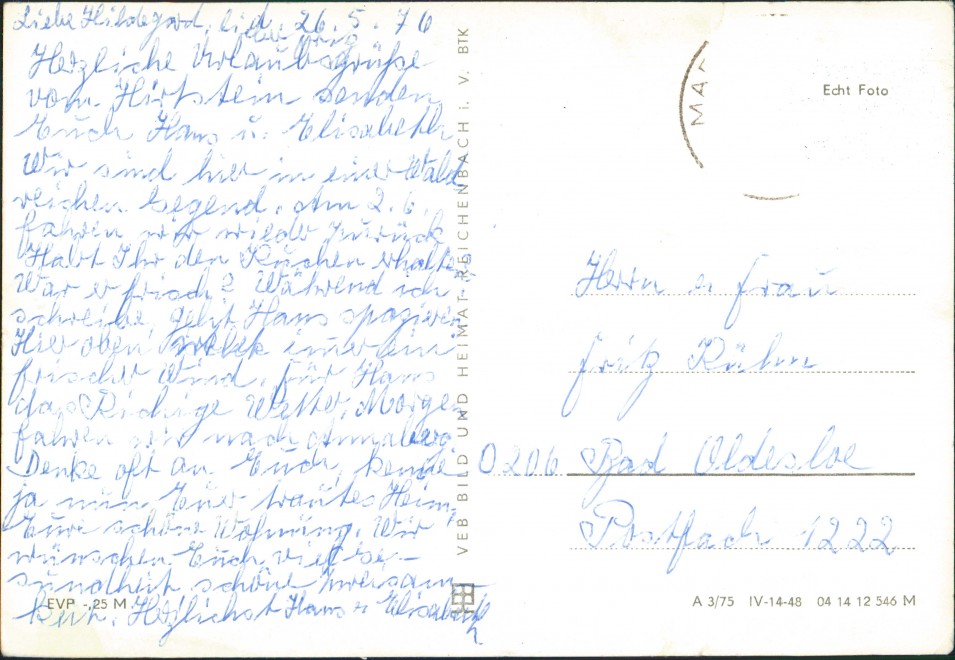 Liebe Hildegard, lieb. 26.5.76
Herzliche Urlaubsgrüße
vom Hirtstein senden
Euch Hans u. Elisabeth
Wir sind hier in einer Wald
reichen Gegend. Am 2.6.
fahren wir wieder zurück
Habt Ihr den Kuchen erhalten
War er frisch? Während ich
schreibe, geht Hans spazieren
Hier oben weht immer ein
frischer Wind, für Hans
das Richige Wetter. Morgen
fahren wir nach Annaberg
Denke oft an Euch, kenne
ja nun Euer trautes Heim,
Eure schöne Wohnung. Wir
wünschen Euch viel Ge-
sundheit schöne Zweisam-
keit. Herzlichst Hans u. Elisabeth
EVP -,25 M
VEB BILD UND HEIMAT REICHENBACH i. V. BTK
MA
Echt Foto
Herrn u. Frau
Fritz Kühn
0206 Bad Oldesloe
Postfach 1222
A 3/75 IV-14-48 04 14 12 546 M